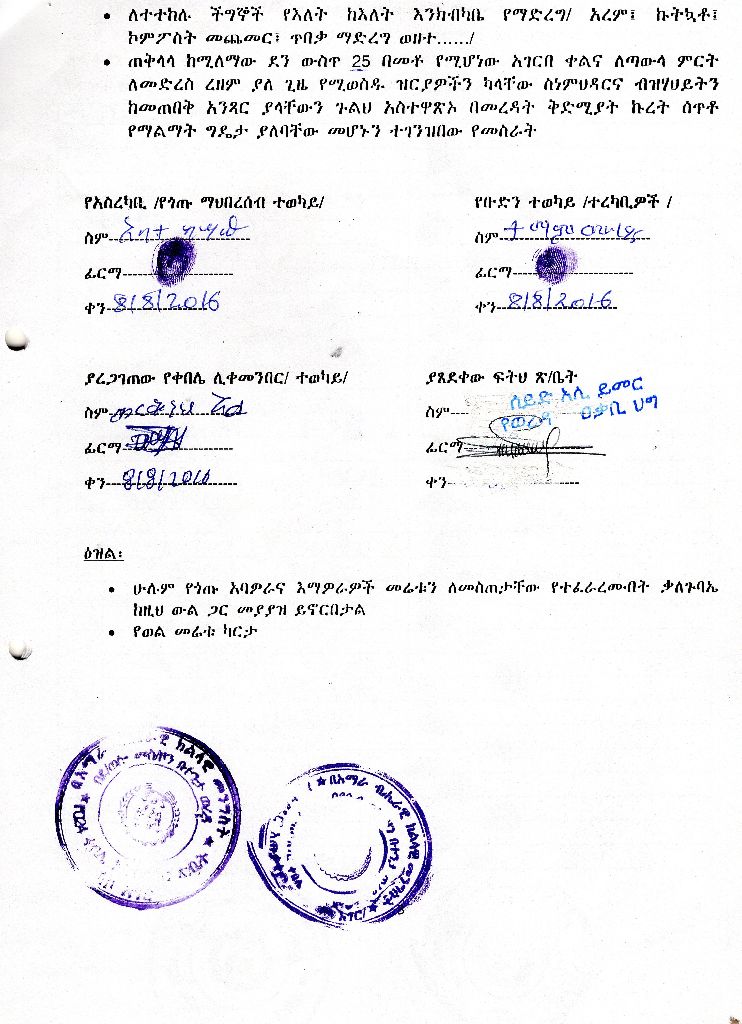 • ለተተከሉ ችግኞች የእለት ከእለት እንክብካቤ የማድረግ/ አረም፤ ኩትኳቶ፤
ኮምፖስት መጨመር፣ ጥበቃ ማድረግ ወዘተ....../
• ጠቅላላ ከሚለማው ደን ውስጥ 25 በመቶ የሚሆነው አገርበ ቀልና ለጣውላ ምርት
ለመድረስ ረዘም ያለ ጊዜ የሚወስዱ ዝርያዎችን ካላቸው ስነምህዳርና ብዝሃህይትን
ከመጠበቅ አንጻር ያላቸውን ጉልህ አስተዋጽኦ በመረዳት ቅድሚያት ኩረት ሰጥቶ
የማልማት ግዴታ ያለባቸው መሆኑን ተገንዝበው የመስራት
የአስረካቢ /የጎጡ ማህበረሰብ ተወካይ/
የቡድን ተወካይ /ተረካቢዎች /
ስም
ስም
ፊርማ
ፊርማ
ቀን 8/8/2016
ቀን 8/8/2016
ያረጋገጠው የቀበሌ ሊቀመንበር/ ተወካይ/
ያጸደቀው ፍትህ ጽ/ቤት
ስም
ስም ሰይድ አሊ ይመር
የወረዳ ዐቃቢ ህግ
ፊርማ
ፊርማ
ቀን 8/8/2016
ቀን
ዕዝል፡
• ሁሉም የጎጡ አባዎራና እማዎራዎች መሬቱን ለመስጠታቸው የተፈራረሙበት ቃለጉባኤ
ከዚህ ውል ጋር መያያዝ ይኖርበታል
• የወል መሬቱ ካርታ
በአማራ ክልላዊ መንግስት
በአማራ ብሔራዊ ክልላዊ